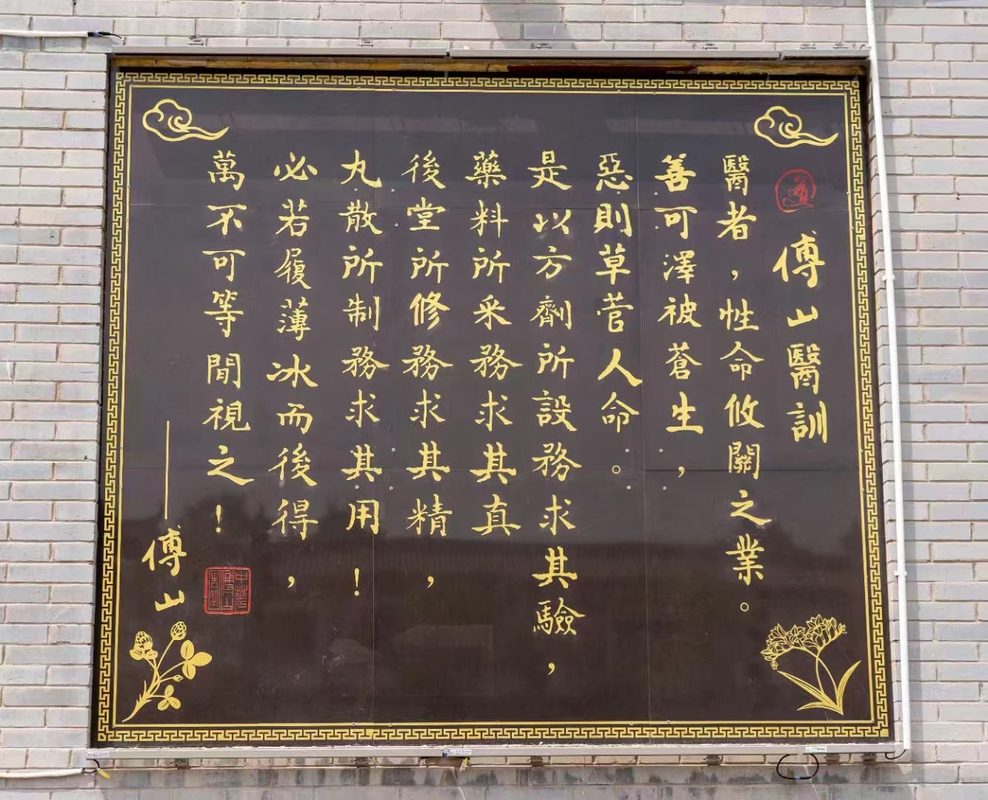 傅山醫訓
醫者，性命攸關之業。
善可澤被蒼生，
惡則草菅人命。
是以方劑所設務求其驗，
藥料所采務求其真
後堂所修務求其精，
丸散所制務求其用！
必若履薄冰而後得，
萬不可等閒視之！
——傅山